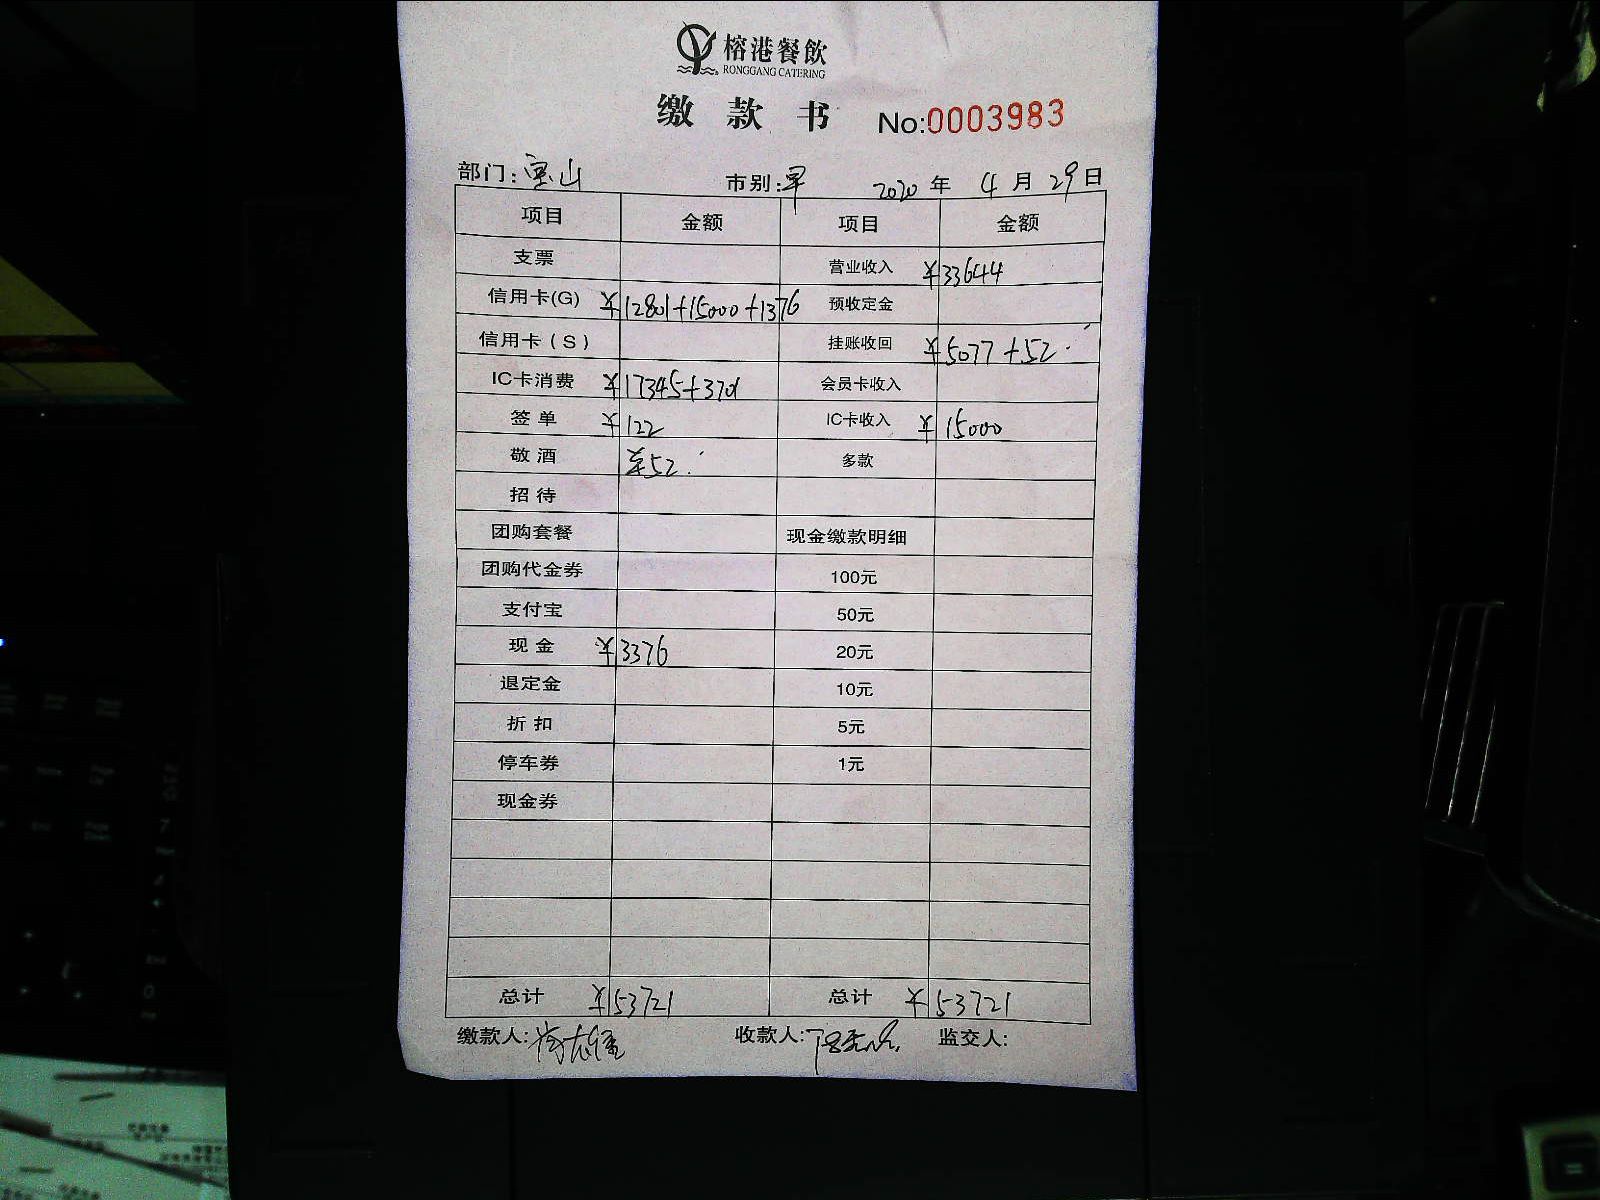 榕港餐飲
RONGGANG CATERING
缴款书 No:0003983
部门:宝山 市别:早 2020年4月29日
项目 金额 项目 金额
支票 营业收入 ¥33644
信用卡(G) ¥12801+15000+1376 预收定金
信用卡(S) 挂账收回 ¥5077+52.
IC卡消费 ¥17345+3701 会员卡收入
签单 ¥122 IC卡收入 ¥15000
敬酒 52. 多款
招待
团购套餐 现金缴款明细
团购代金券 100元
支付宝 50元
现金 ¥3376 20元
退定金 10元
折扣 5元
停车券 1元
现金券
总计 ¥53721 总计 ¥53721
缴款人: 收款人: 监交人: